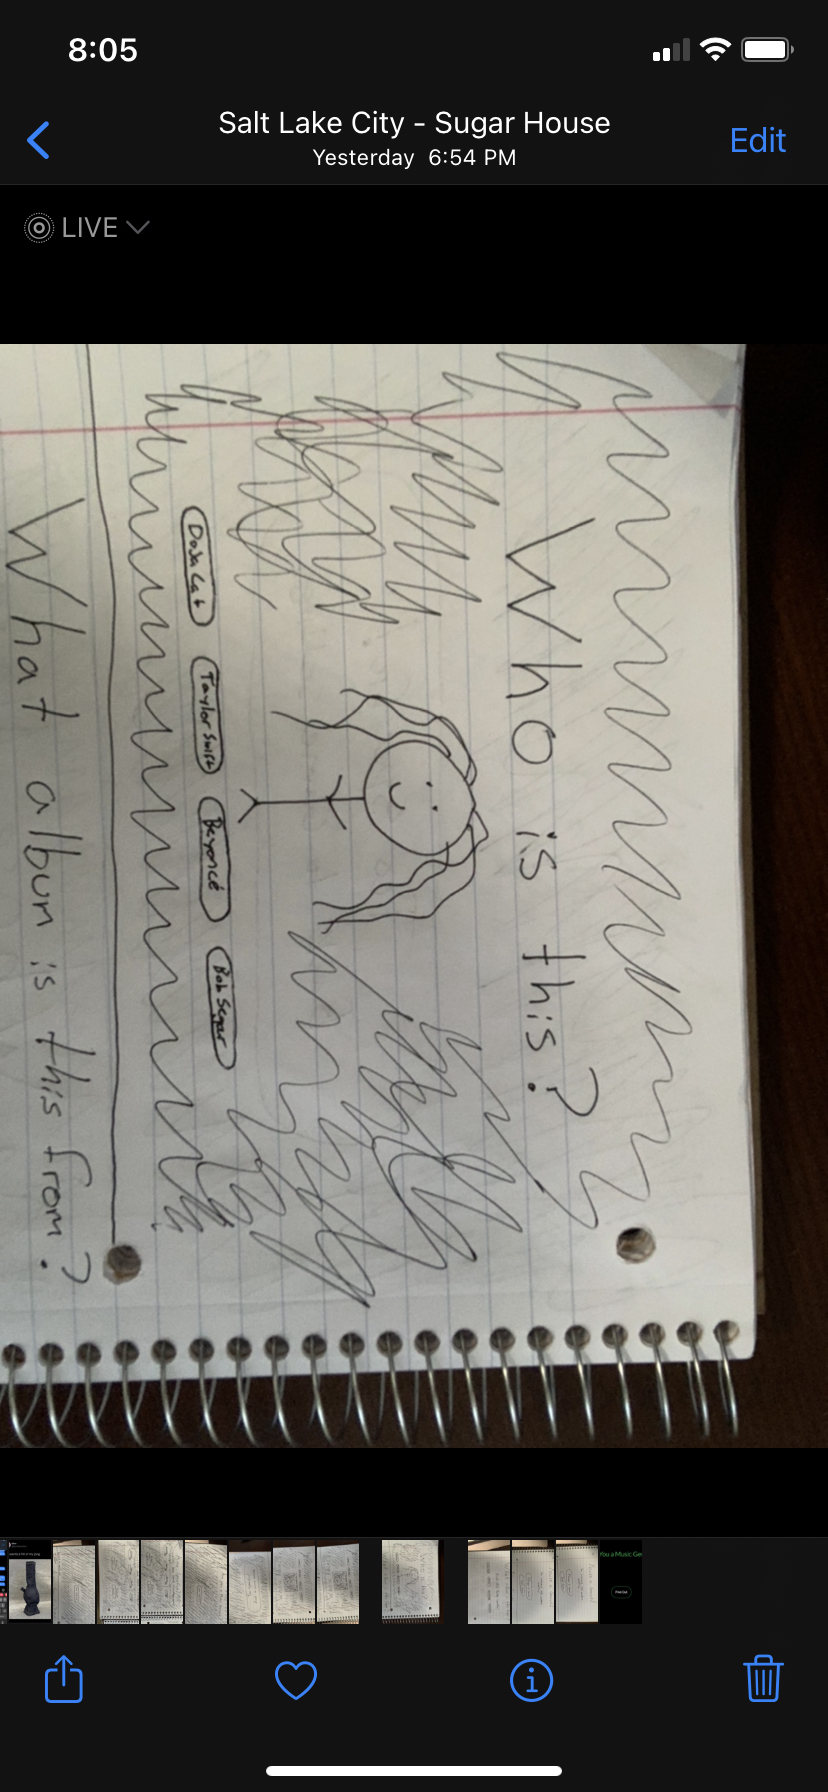 8:05
Salt Lake City - Sugar House
Yesterday 6:54 PM
Edit
LIVE
Who is this?
Doja Cat
Taylor Swift
Beyoncé
Bob Seger
What album is this from?